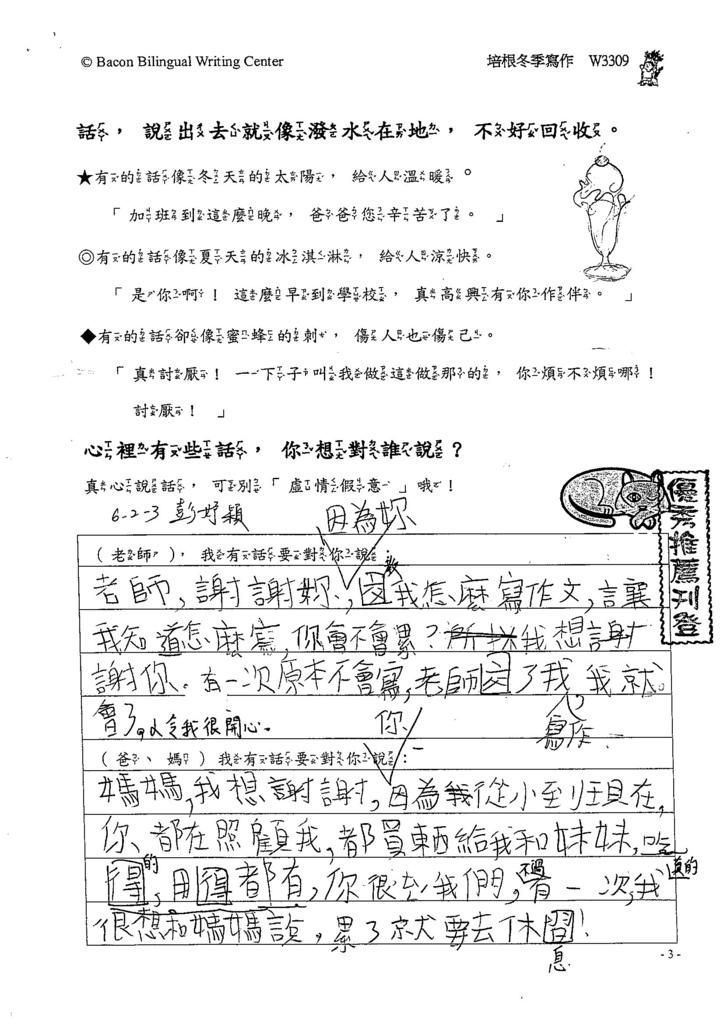 © Bacon Bilingual Writing Center
培根冬季寫作 W3309
話，說出去就像潑水在地，不好回收。
★有的話像冬天的太陽，給人溫暖。
「加班到這麼晚，爸爸您辛苦了。」
◎有的話像夏天的冰淇淋，給人涼快。
「是你啊！這麼早到學校，真高興有你作伴。」
◆有的話卻像蜜蜂的刺，傷人也傷己。
「真討厭！一下子叫我做這做那的，你煩不煩哪！
討厭！」
心裡有些話，你想對誰說？
真心說話，可別「虛情假意」哦！
優秀推薦刊登
6-2-3 彭妤穎
因為妳
（老師），我有話要對你說
教
老師，謝謝妳，因我怎麼寫作文，讓
我知道怎麼寫，你會不會累？我想謝
謝你。有一次原本不會寫，老師因了我我就。
會了。令我很開心。
你
寫作
（爸、媽）我有話要對你說：
媽媽，我想謝謝，因為我從小至現在，
你、都在照顧我，都買東西給我和妹妹，吃
的
得，用得都有，你很愛我們，有一次，我
不過
真的
很想和媽媽說，累了就要去休息！
息
-3-